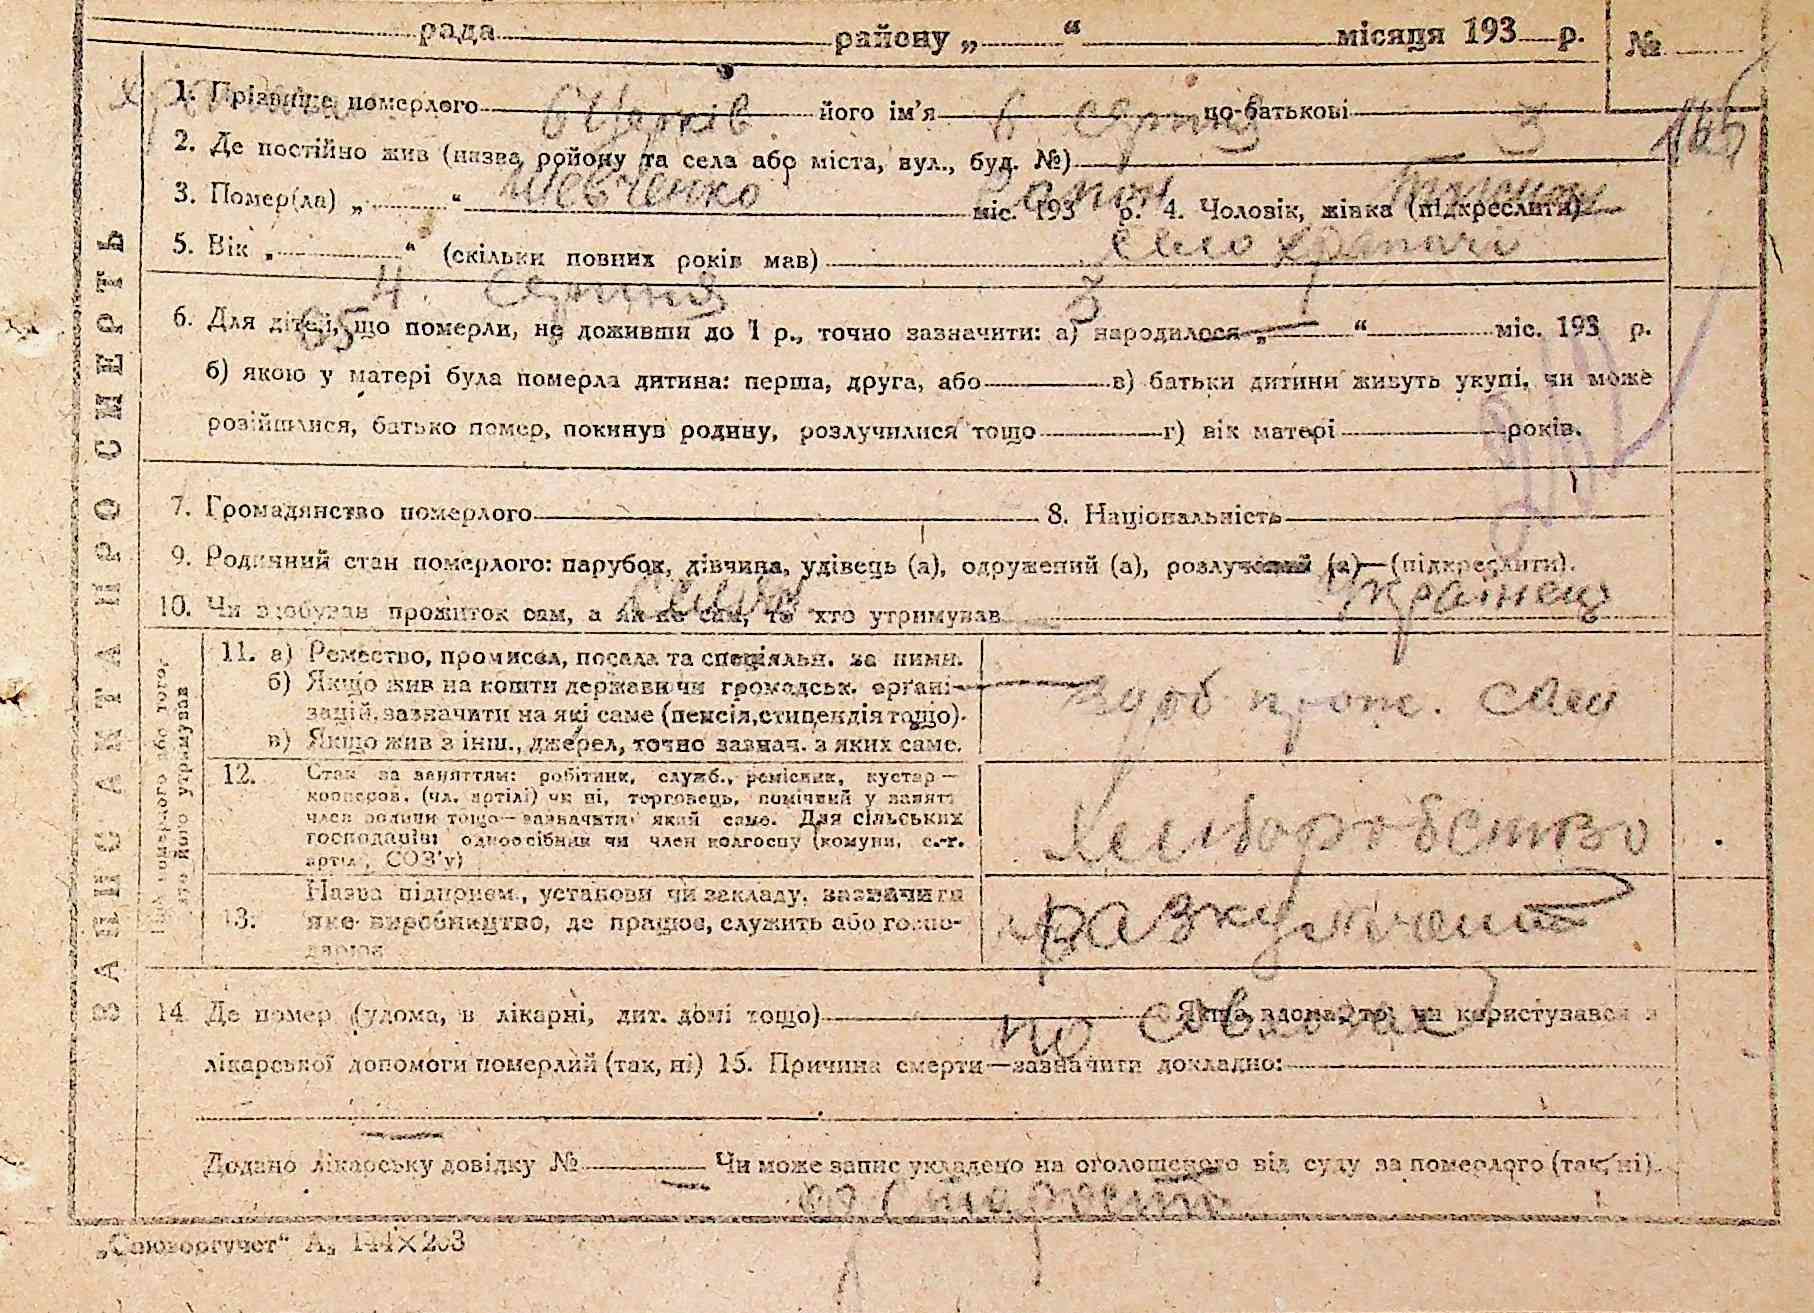 рада району „ “ місяця 193 р. №
Храпачі б Церків 6 серпня 3 165
1. Прізвище померлого його ім’я по-батькові
2. Де постійно жив (назва ройону та села або міста, вул., буд. №)
Шевченко
3. Помер(ла) „ “ міс. 193 р. 4. Чоловік, жінка (підкреслити)
село Храпачі
5. Вік „ “ (скільки повних років мав)
4 Серпня 3
65
6. Для дітей, що померли, не доживши до 1 р., точно зазначити: а) народилося „ “ міс. 193 р.
б) якою у матері була померла дитина: перша, друга, або в) батьки дитини живуть укупі, чи може
розійшлися, батько помер, покинув родину, розлучилися тощо г) вік матері років.
7. Громадянство померлого 8. Національність
9. Родинний стан померлого: парубок, дівчина, удівець (а), одружений (а), розлучений (а)—(підкреслити).
українец
10. Чи здобував прожиток сам, а як не сам, то хто утримував
11. а) Ремество, промисел, посада та спеціяльн. за ними.
б) Якщо жив на кошти держави чи громадськ. органі-
зацій, зазначити на які саме (пенсія, стипендія тощо).
в) Якщо жив з інш., джерел, точно зазнач. з яких саме.
здоб прож. сам
12. Стан за заняттям: робітник, служб., ремісник, кустар—
кооперов. (чл. артілі) чи ні, торговець, помічний у занятті
член родини тощо—зазначити який саме. Для сільських
господарів: одноосібник чи член колгоспу (комуни, с.-г.
артілі, СОЗ’у)
хлиборобство
13. Назва підприєм., установи чи закладу, зазначити
яке виробництво, де працює, служить або госпо-
дарює
разкуляченит
14. Де помер (удома, в лікарні, дит. домі тощо) Якщо вдома, то чи користувався з
по совхозах
лікарської допомоги померлий (так, ні) 15. Причина смерти—зазначити докладно:
Додано лікарську довідку № Чи може запис укладено на оголошеного від суду за померлого (так, ні).
од старости
ЗАПИС АКТА ПРО СМЕРТЬ
Для померлого або того,
хто його утримував
„Союзоргучет“ А₅ 144×203